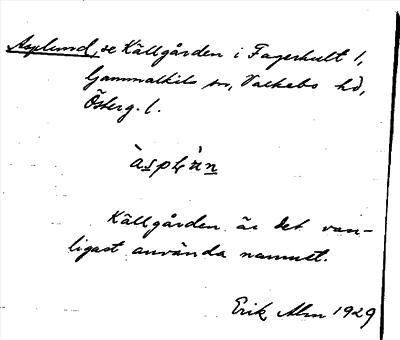 Asplund, se Källgården i Fagerhult 1,
Gammalkils sn, Valkebo hd,
Österg. l.
Källgården är det van-
ligast använda namnet.
Erik Alm 1929